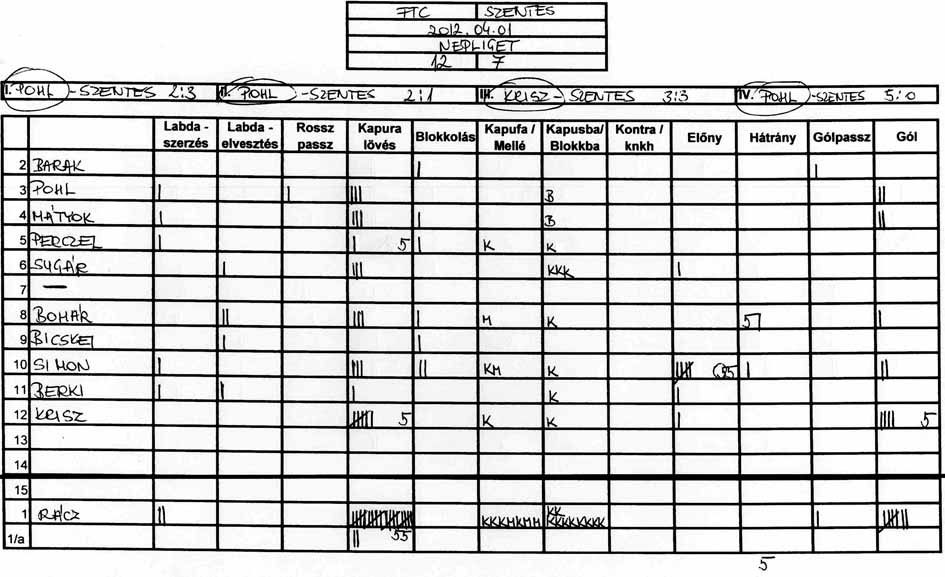 FTC SZENTES
2012.04.01
NÉPLIGET
12 7
I. POHL - SZENTES 2:3 II. POHL - SZENTES 2:1 III. KRISZ - SZENTES 3:3 IV. POHL - SZENTES 5:0
Labda - szerzés Labda - elvesztés Rossz passz Kapura lövés Blokkolás Kapufa / Mellé Kapusba/ Blokkba Kontra / knkh Előny Hátrány Gólpassz Gól
2 BARAK | |
3 POHL | | ||| B ||
4 MÁTYOK | ||| | B ||
5 PERCZEL | | 5 | K K
6 SUGÁR | ||| KKK |
7 —
8 BOHÁR || ||| | M K 5 |
9 BICSKEI | |
10 SIMON | ||| || KM K | ||
11 BERKI | | | K |
12 KRISZ 5 K K | |||| 5
13
14
15
1 RÁCZ || KKKMKMM KK KKKKKKKK |
1/a || 55
5